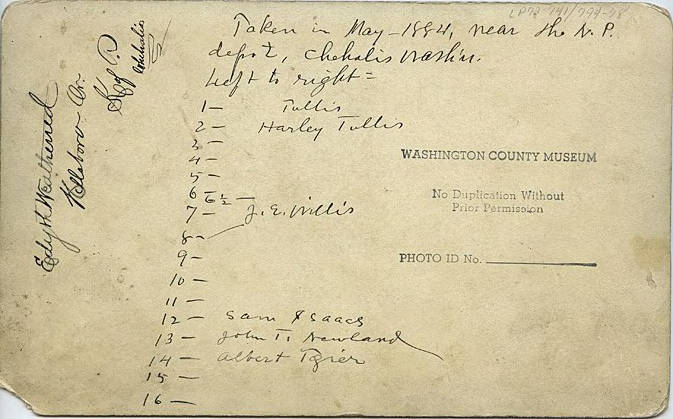 Taken in May - 1884, near the N. P.
depot, Chehalis Washn.
Left to right =
1 — Tullis
2 — Harley Tullis
3 —
4 —
5 —
6 —
6½ —
7 — J. E. Willis
8 —
9 —
10 —
11 —
12 — Sam Isaacs
13 — John T. Newland
14 — Albert Tozier
15 —
16 —
WASHINGTON COUNTY MUSEUM
No Duplication Without
Prior Permission
PHOTO ID No.
Edyth Weatherred
Hillsboro Or.
Chehalis